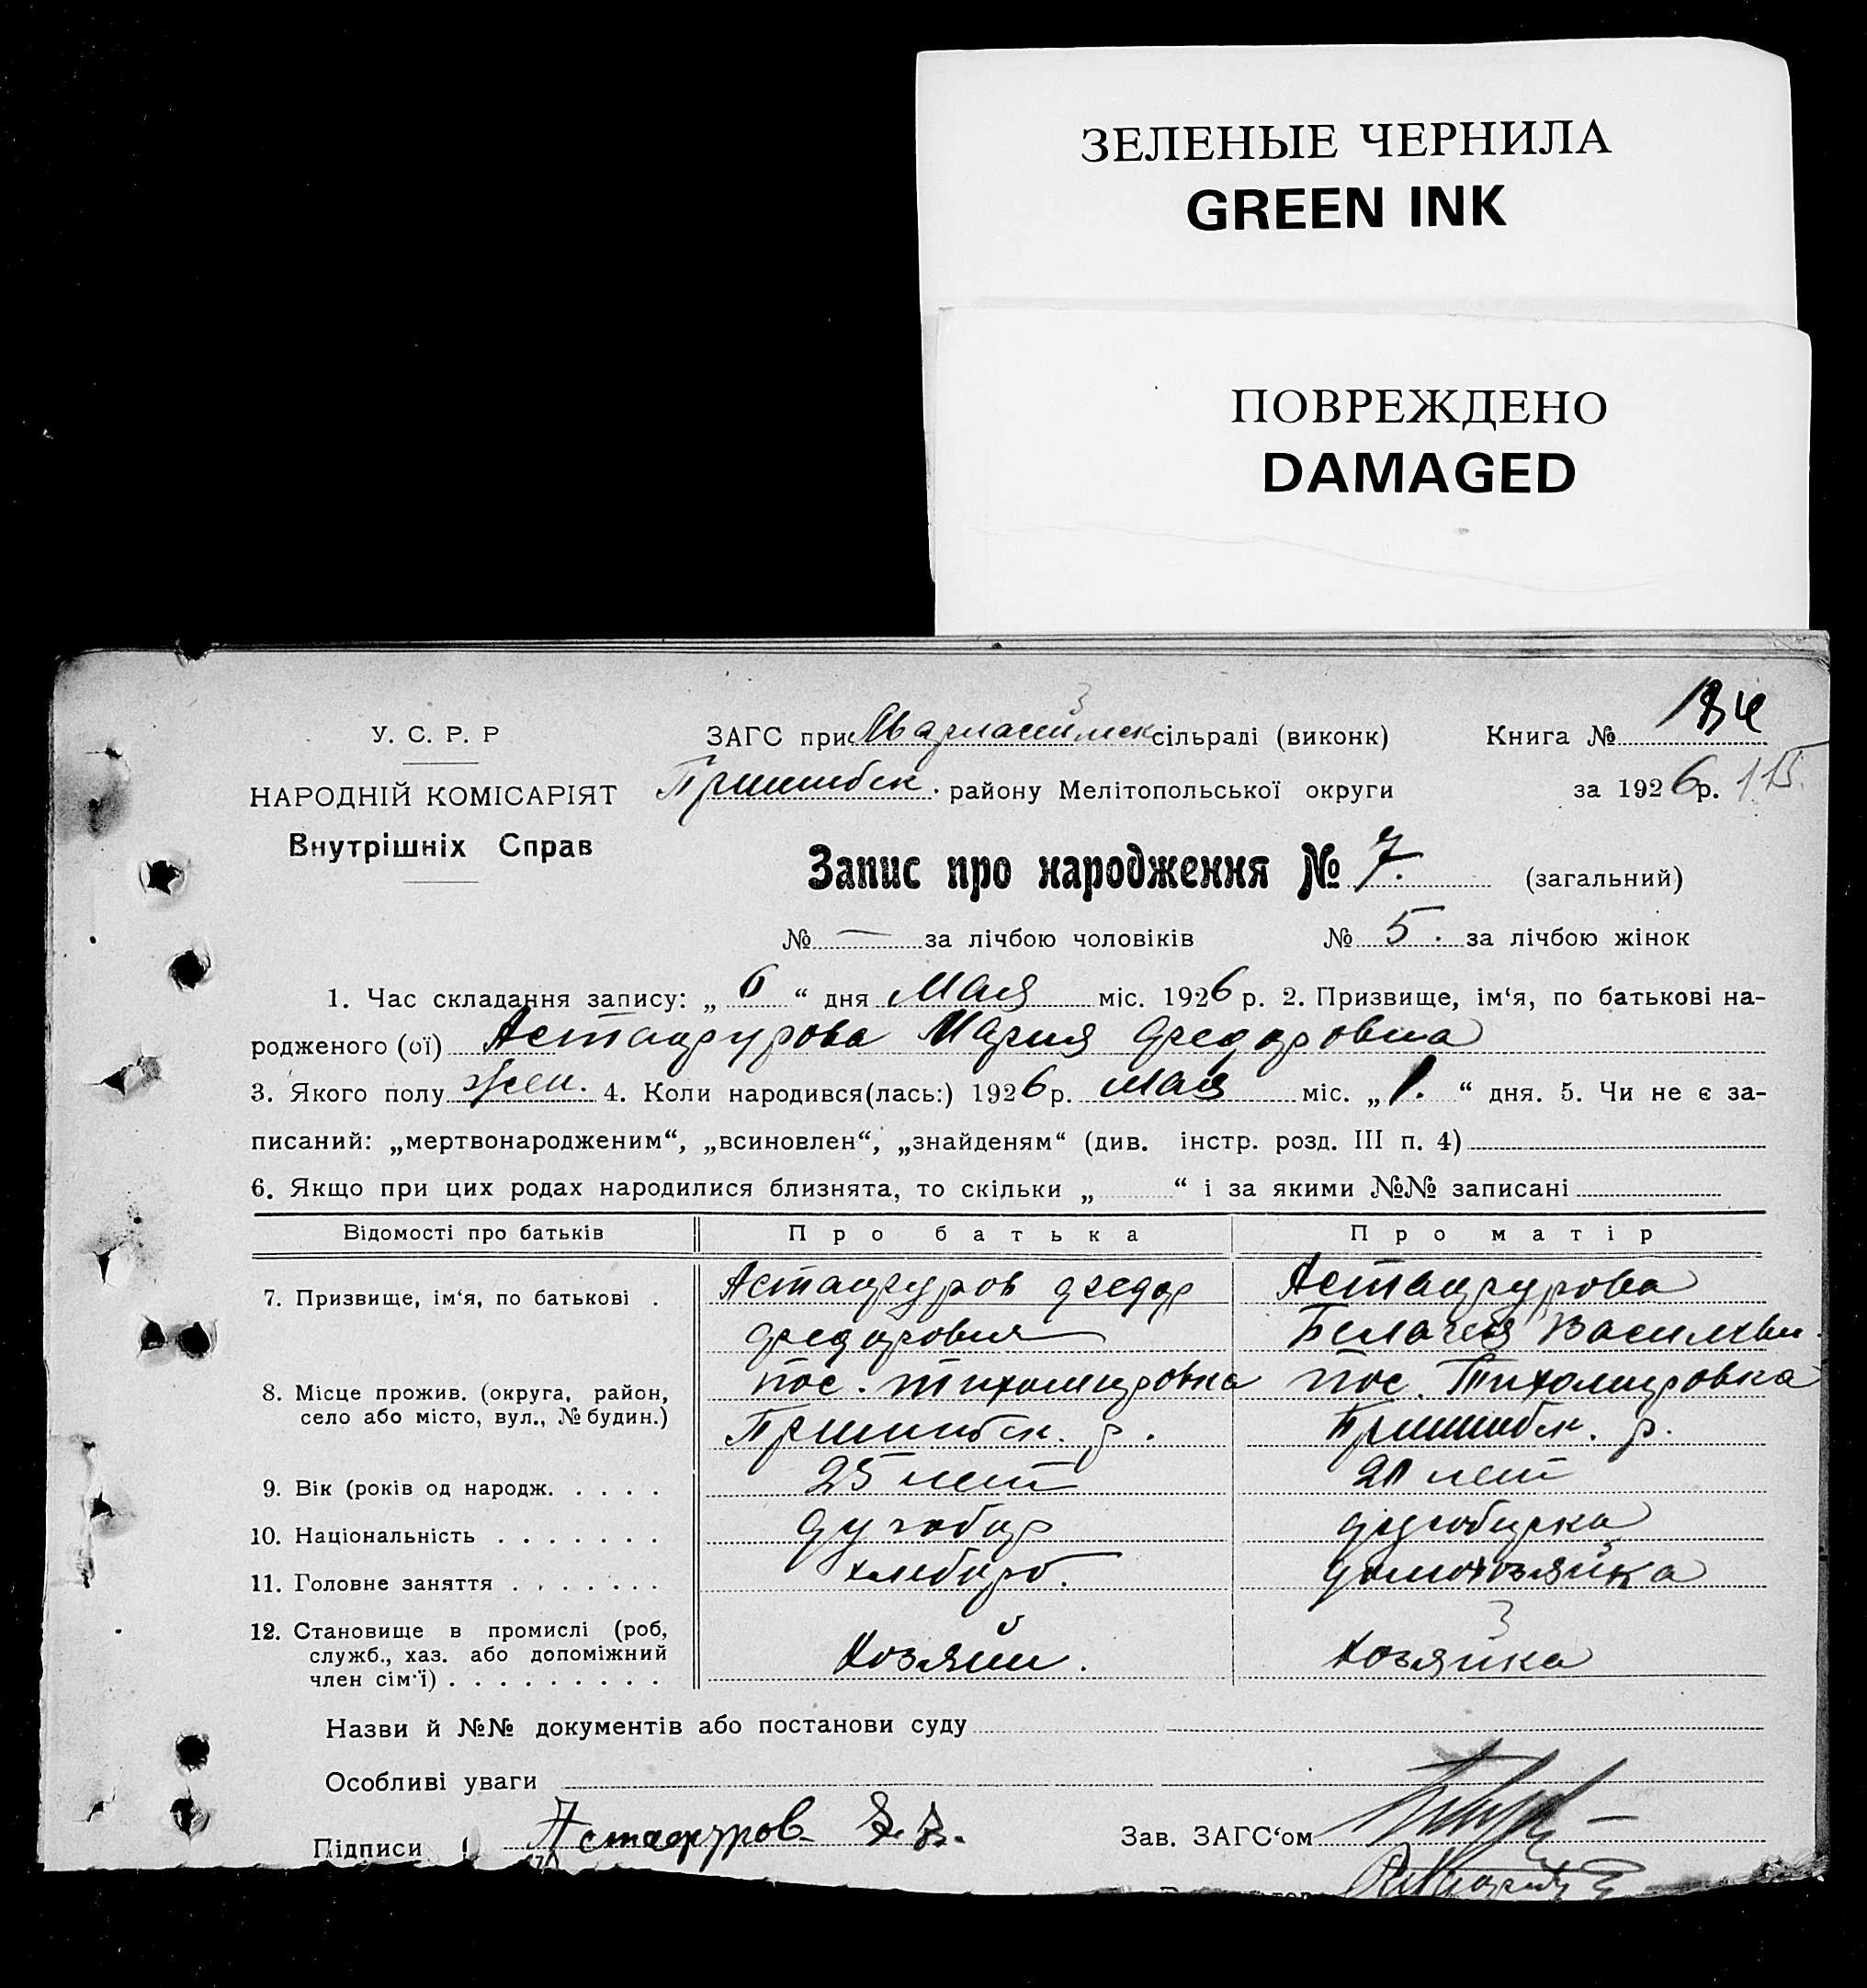 ЗЕЛЕНЫЕ ЧЕРНИЛА
GREEN INK
ПОВРЕЖДЕНО
DAMAGED
У. С. Р. Р
ЗАГС при сільраді (виконк)
Книга №
НАРОДНІЙ КОМІСАРІЯТ
Пришибск. району Мелітопольської округи
за 1926 р. 115.
Внутрішніх Справ
Запис про народження № 7. (загальний)
№ — за лічбою чоловіків № 5. за лічбою жінок
1. Час складання запису: „ 6 “ дня Мая міс. 1926 р. 2. Призвище, ім‘я, по батькові на-
родженого (ої) Астафурова Мария Федоровна
3. Якого полу жен. 4. Коли народився(лась:) 1926 р. мая міс. „ 1. “ дня. 5. Чи не є за-
писаний: „мертвонародженим“, „всиновлен“, „знайденям“ (див. інстр. розд. III п. 4)
6. Якщо при цих родах народилися близнята, то скільки „ “ і за якими №№ записані
Відомості про батьків Про батька Про матір
7. Призвище, ім‘я, по батькові . Астафуров Федор Астафурова
Федорович Василевн.
8. Місце прожив. (округа, район, пос. Тихомировка пос. Тихомировка
село або місто, вул., № будин.) Пришибск. р. Пришибск. р.
9. Вік (років од народж. . . . . 25 лет 21 лет
10. Національність . . . . . . . духобор духоборка
11. Головне заняття . . . . . . . хлебороб. домохозяйка
12. Становище в промислі (роб,
служб., хаз. або допоміжний Хозяин. хозяйка
член сім‘ї) . . . . . . . . .
Назви й №№ документів або постанови суду
Особливі уваги
Підписи Астафуров Ф. Ф. Зав. ЗАГС‘ом